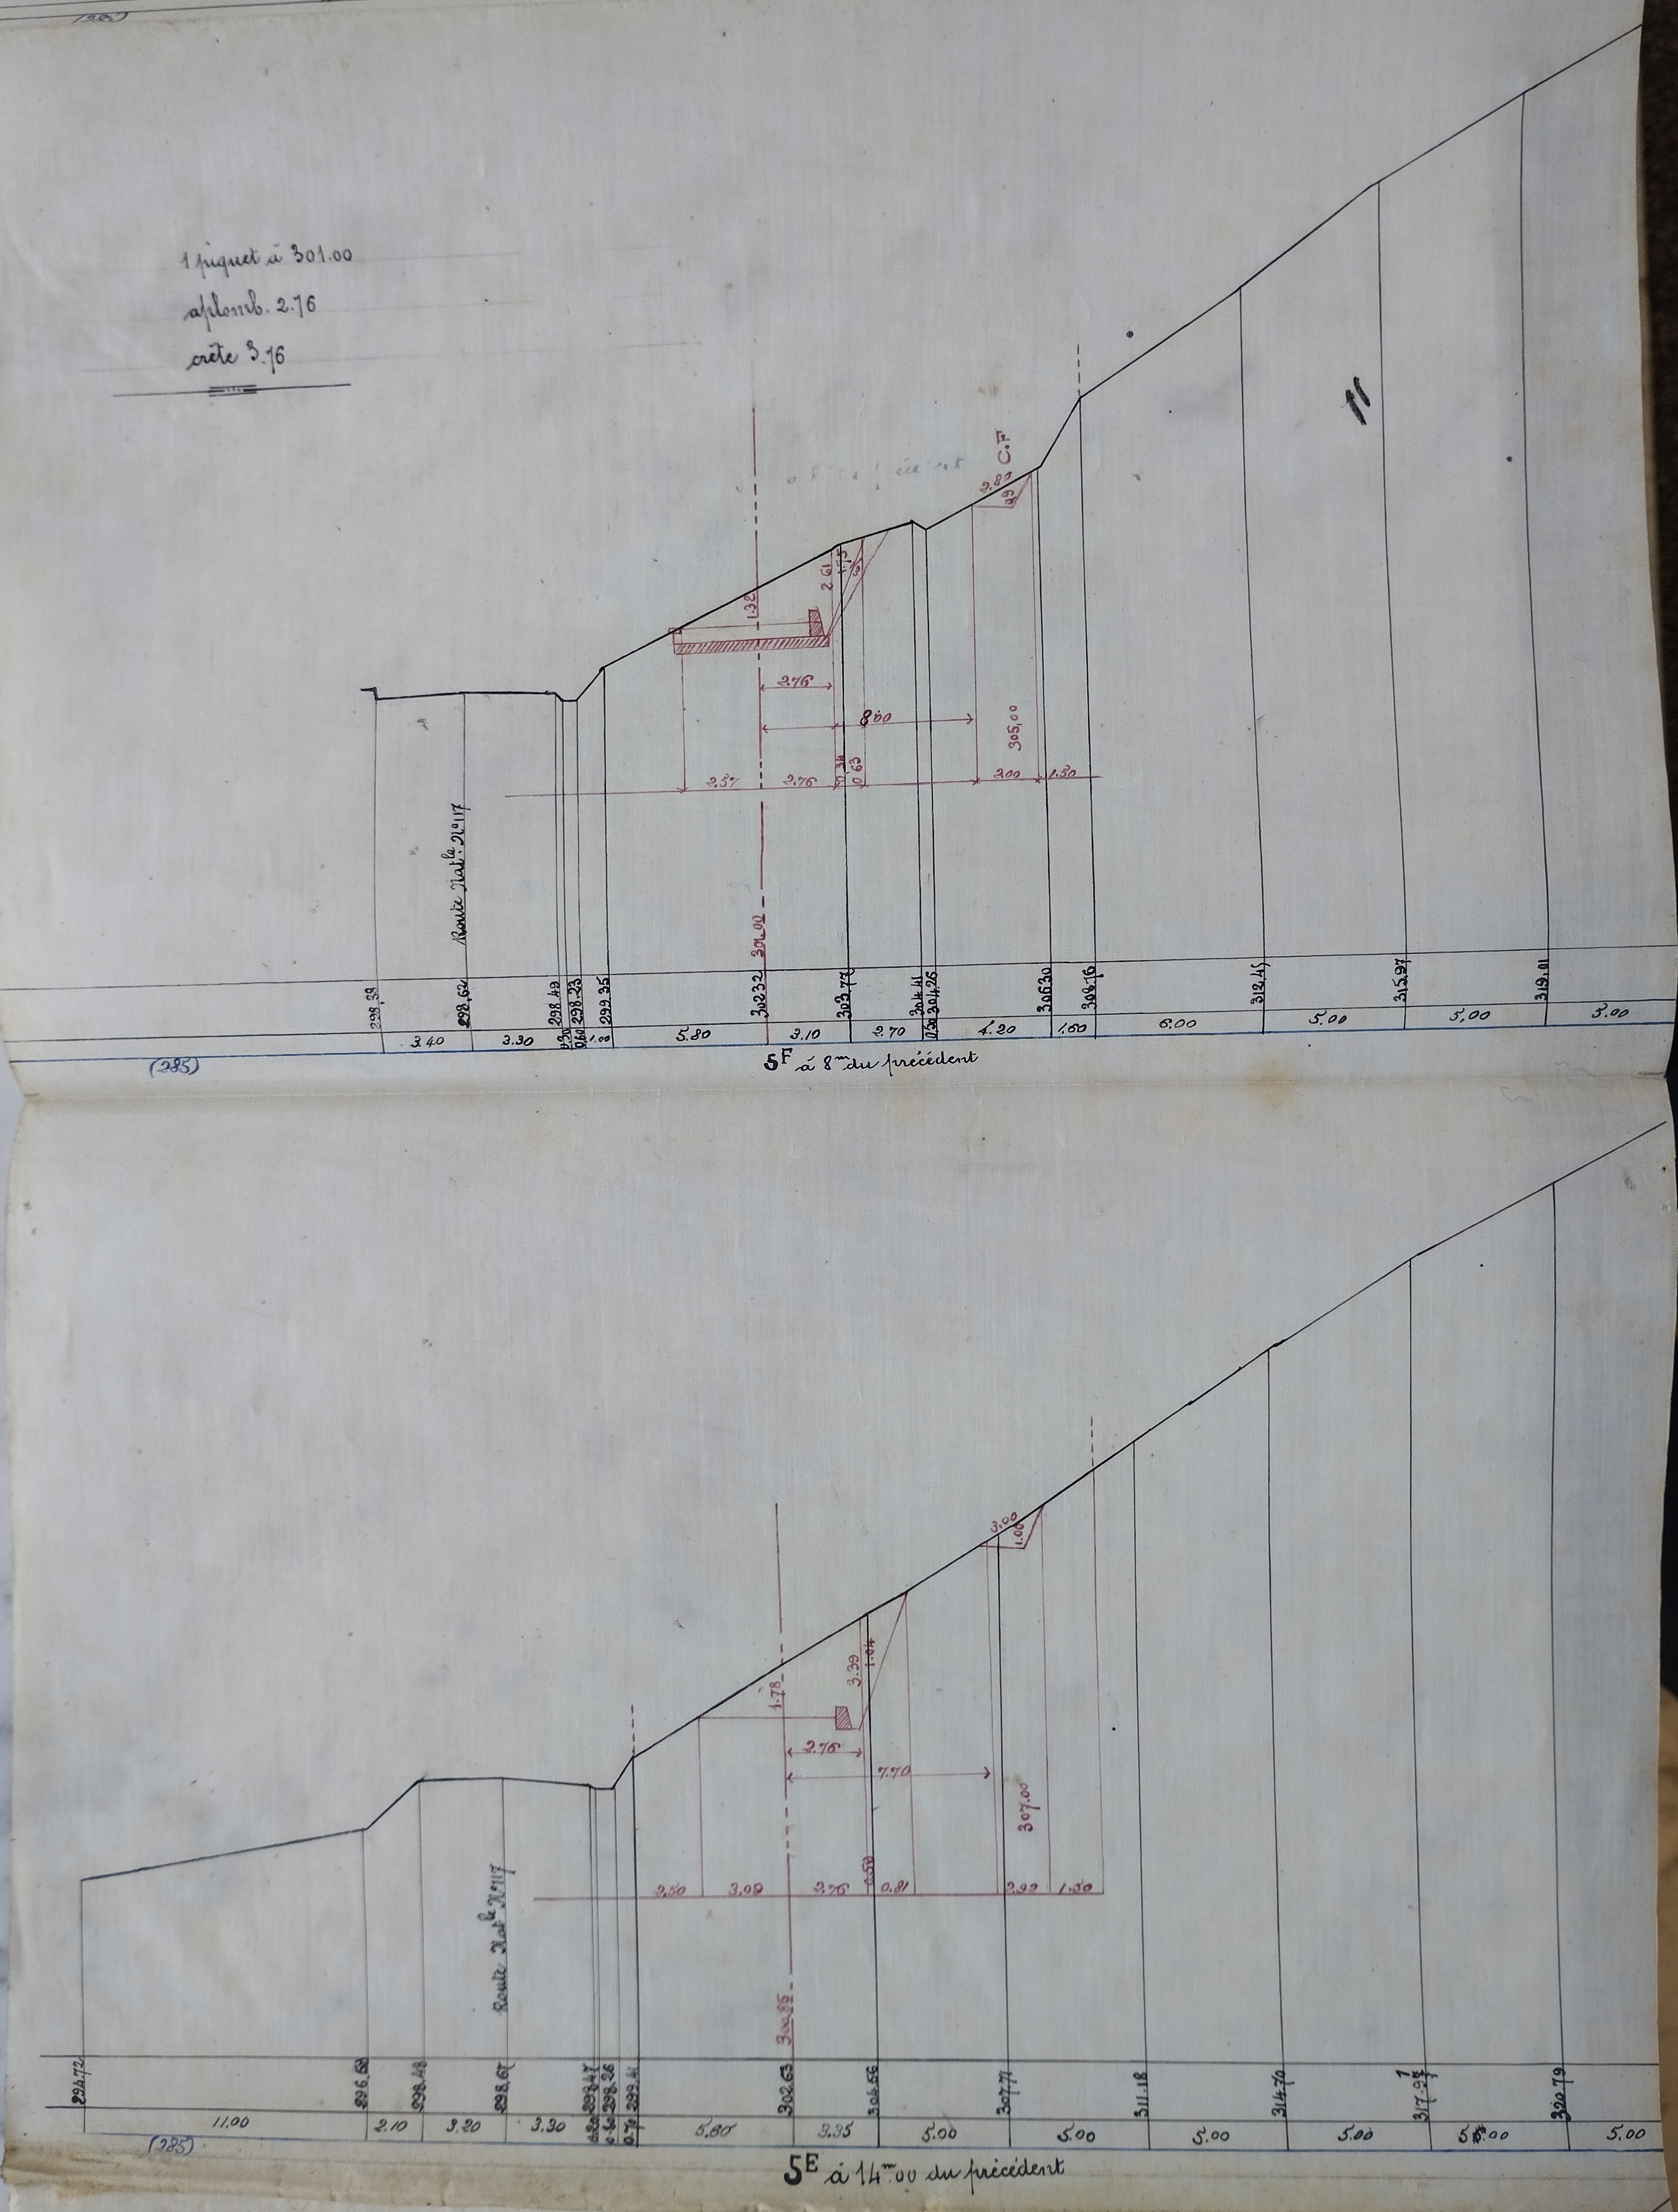 (285)
1 piquet à 301.00
aplomb. 2.76
crête 3.76
C.F
2.80
1.32
2.61
2.76
8.00
305,00
2.57
2.76
0,34
0,63
2.00
1.50
Route Natle. No 117
301.00
298,38
298,62
298.49
298.23
299.35
302.32
303.77
304.41
304.26
306.30
308.16
312.45
315.97
319.01
3.40
3.30
0.30
0.60
1.00
5.80
3.10
2.70
0.50
4.20
1.60
6.00
5.00
5,00
5.00
(285)
5F à 8m du précédent
3.00
1.00
3.39
1.04
1.78
2.76
7.70
307.00
2.50
3.09
2.76
0.59
0.81
1.50
Route Natle No 117
300.85
294.72
296.58
298.48
298.67
298.47
298.26
299.41
302.63
304.66
307.71
311.18
314.70
320.79
11.00
2.10
3.20
3.30
0.70
5.80
3.35
5.00
5.00
5.00
5.00
5.00
5.00
(285)
5E à 14m.00 du précédent